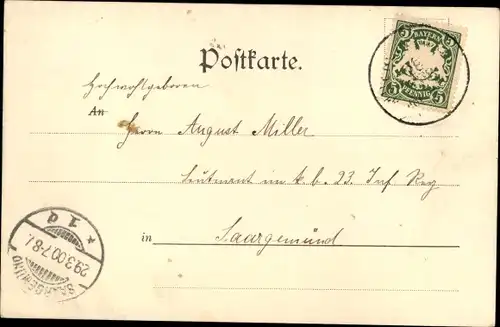 BAYERN
5 5
PFENNIG
Postkarte.
Hochwohlgeboren
An
Herrn August Miller
Leutnant im k. b. 23. Inf Reg
in Saargemünd
* 1 d
29.3.00.7-8
SAARGEMÜND